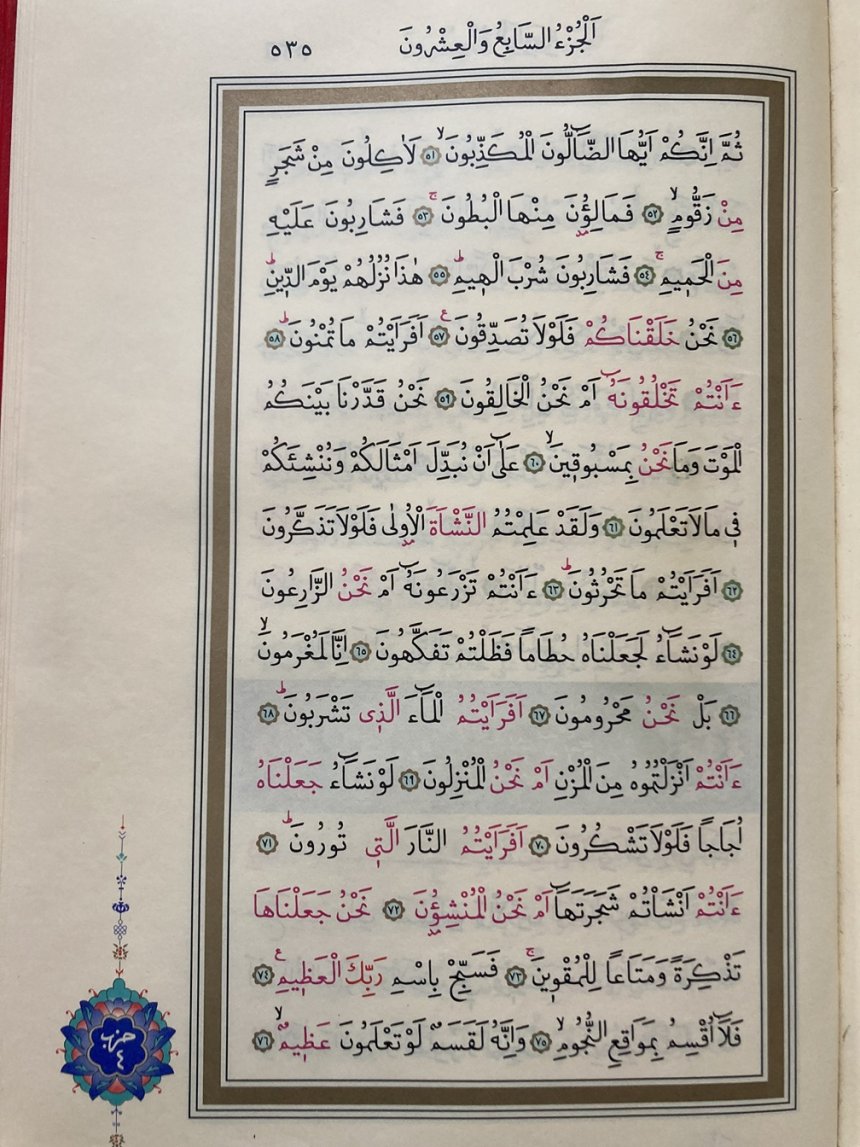 اَلْجُزْءُ السَّابِعُ وَالْعِشْرُونَ ٥٣٥
ثُمَّ اِنَّكُمْ اَيُّهَا الضَّٓالُّونَ الْمُكَذِّبُونَۙ ٥١ لَاٰكِلُونَ مِنْ شَجَرٍ
مِنْ زَقُّومٍۙ ٥٢ فَمَالِؤُ۫نَ مِنْهَا الْبُطُونَۚ ٥٣ فَشَارِبُونَ عَلَيْهِ
مِنَ الْحَم۪يمِۚ ٥٤ فَشَارِبُونَ شُرْبَ الْه۪يمِۜ ٥٥ هٰذَا نُزُلُهُمْ يَوْمَ الدّ۪ينِۜ
٥٦ نَحْنُ خَلَقْنَاكُمْ فَلَوْلَا تُصَدِّقُونَ ٥٧ اَفَرَاَيْتُمْ مَا تُمْنُونَۜ ٥٨
ءَاَنْتُمْ تَخْلُقُونَهُٓ اَمْ نَحْنُ الْخَالِقُونَ ٥٩ نَحْنُ قَدَّرْنَا بَيْنَكُمُ
الْمَوْتَ وَمَا نَحْنُ بِمَسْبُوق۪ينَۙ ٦٠ عَلٰٓى اَنْ نُبَدِّلَ اَمْثَالَكُمْ وَنُنْشِئَكُمْ
ف۪ي مَا لَا تَعْلَمُونَ ٦١ وَلَقَدْ عَلِمْتُمُ النَّشْاَةَ الْاُو۫لٰى فَلَوْلَا تَذَكَّرُونَ
٦٢ اَفَرَاَيْتُمْ مَا تَحْرُثُونَۜ ٦٣ ءَاَنْتُمْ تَزْرَعُونَهُٓ اَمْ نَحْنُ الزَّارِعُونَ
٦٤ لَوْ نَشَٓاءُ لَجَعَلْنَاهُ حُطَاماً فَظَلْتُمْ تَفَكَّهُونَ ٦٥ اِنَّا لَمُغْرَمُونَۙ
٦٦ بَلْ نَحْنُ مَحْرُومُونَ ٦٧ اَفَرَاَيْتُمُ الْمَٓاءَ الَّذ۪ي تَشْرَبُونَۜ ٦٨
ءَاَنْتُمْ اَنْزَلْتُمُوهُ مِنَ الْمُزْنِ اَمْ نَحْنُ الْمُنْزِلُونَ ٦٩ لَوْ نَشَٓاءُ جَعَلْنَاهُ
اُجَاجاً فَلَوْلَا تَشْكُرُونَ ٧٠ اَفَرَاَيْتُمُ النَّارَ الَّت۪ي تُورُونَۜ ٧١
ءَاَنْتُمْ اَنْشَاْتُمْ شَجَرَتَهَٓا اَمْ نَحْنُ الْمُنْشِؤُ۫نَ ٧٢ نَحْنُ جَعَلْنَاهَا
تَذْكِرَةً وَمَتَاعاً لِلْمُقْو۪ينَۚ ٧٣ فَسَبِّحْ بِاسْمِ رَبِّكَ الْعَظ۪يمِ ٧٤
فَلَٓا اُقْسِمُ بِمَوَاقِعِ النُّجُومِۙ ٧٥ وَاِنَّهُ لَقَسَمٌ لَوْ تَعْلَمُونَ عَظ۪يمٌۙ ٧٦
حزب
٤